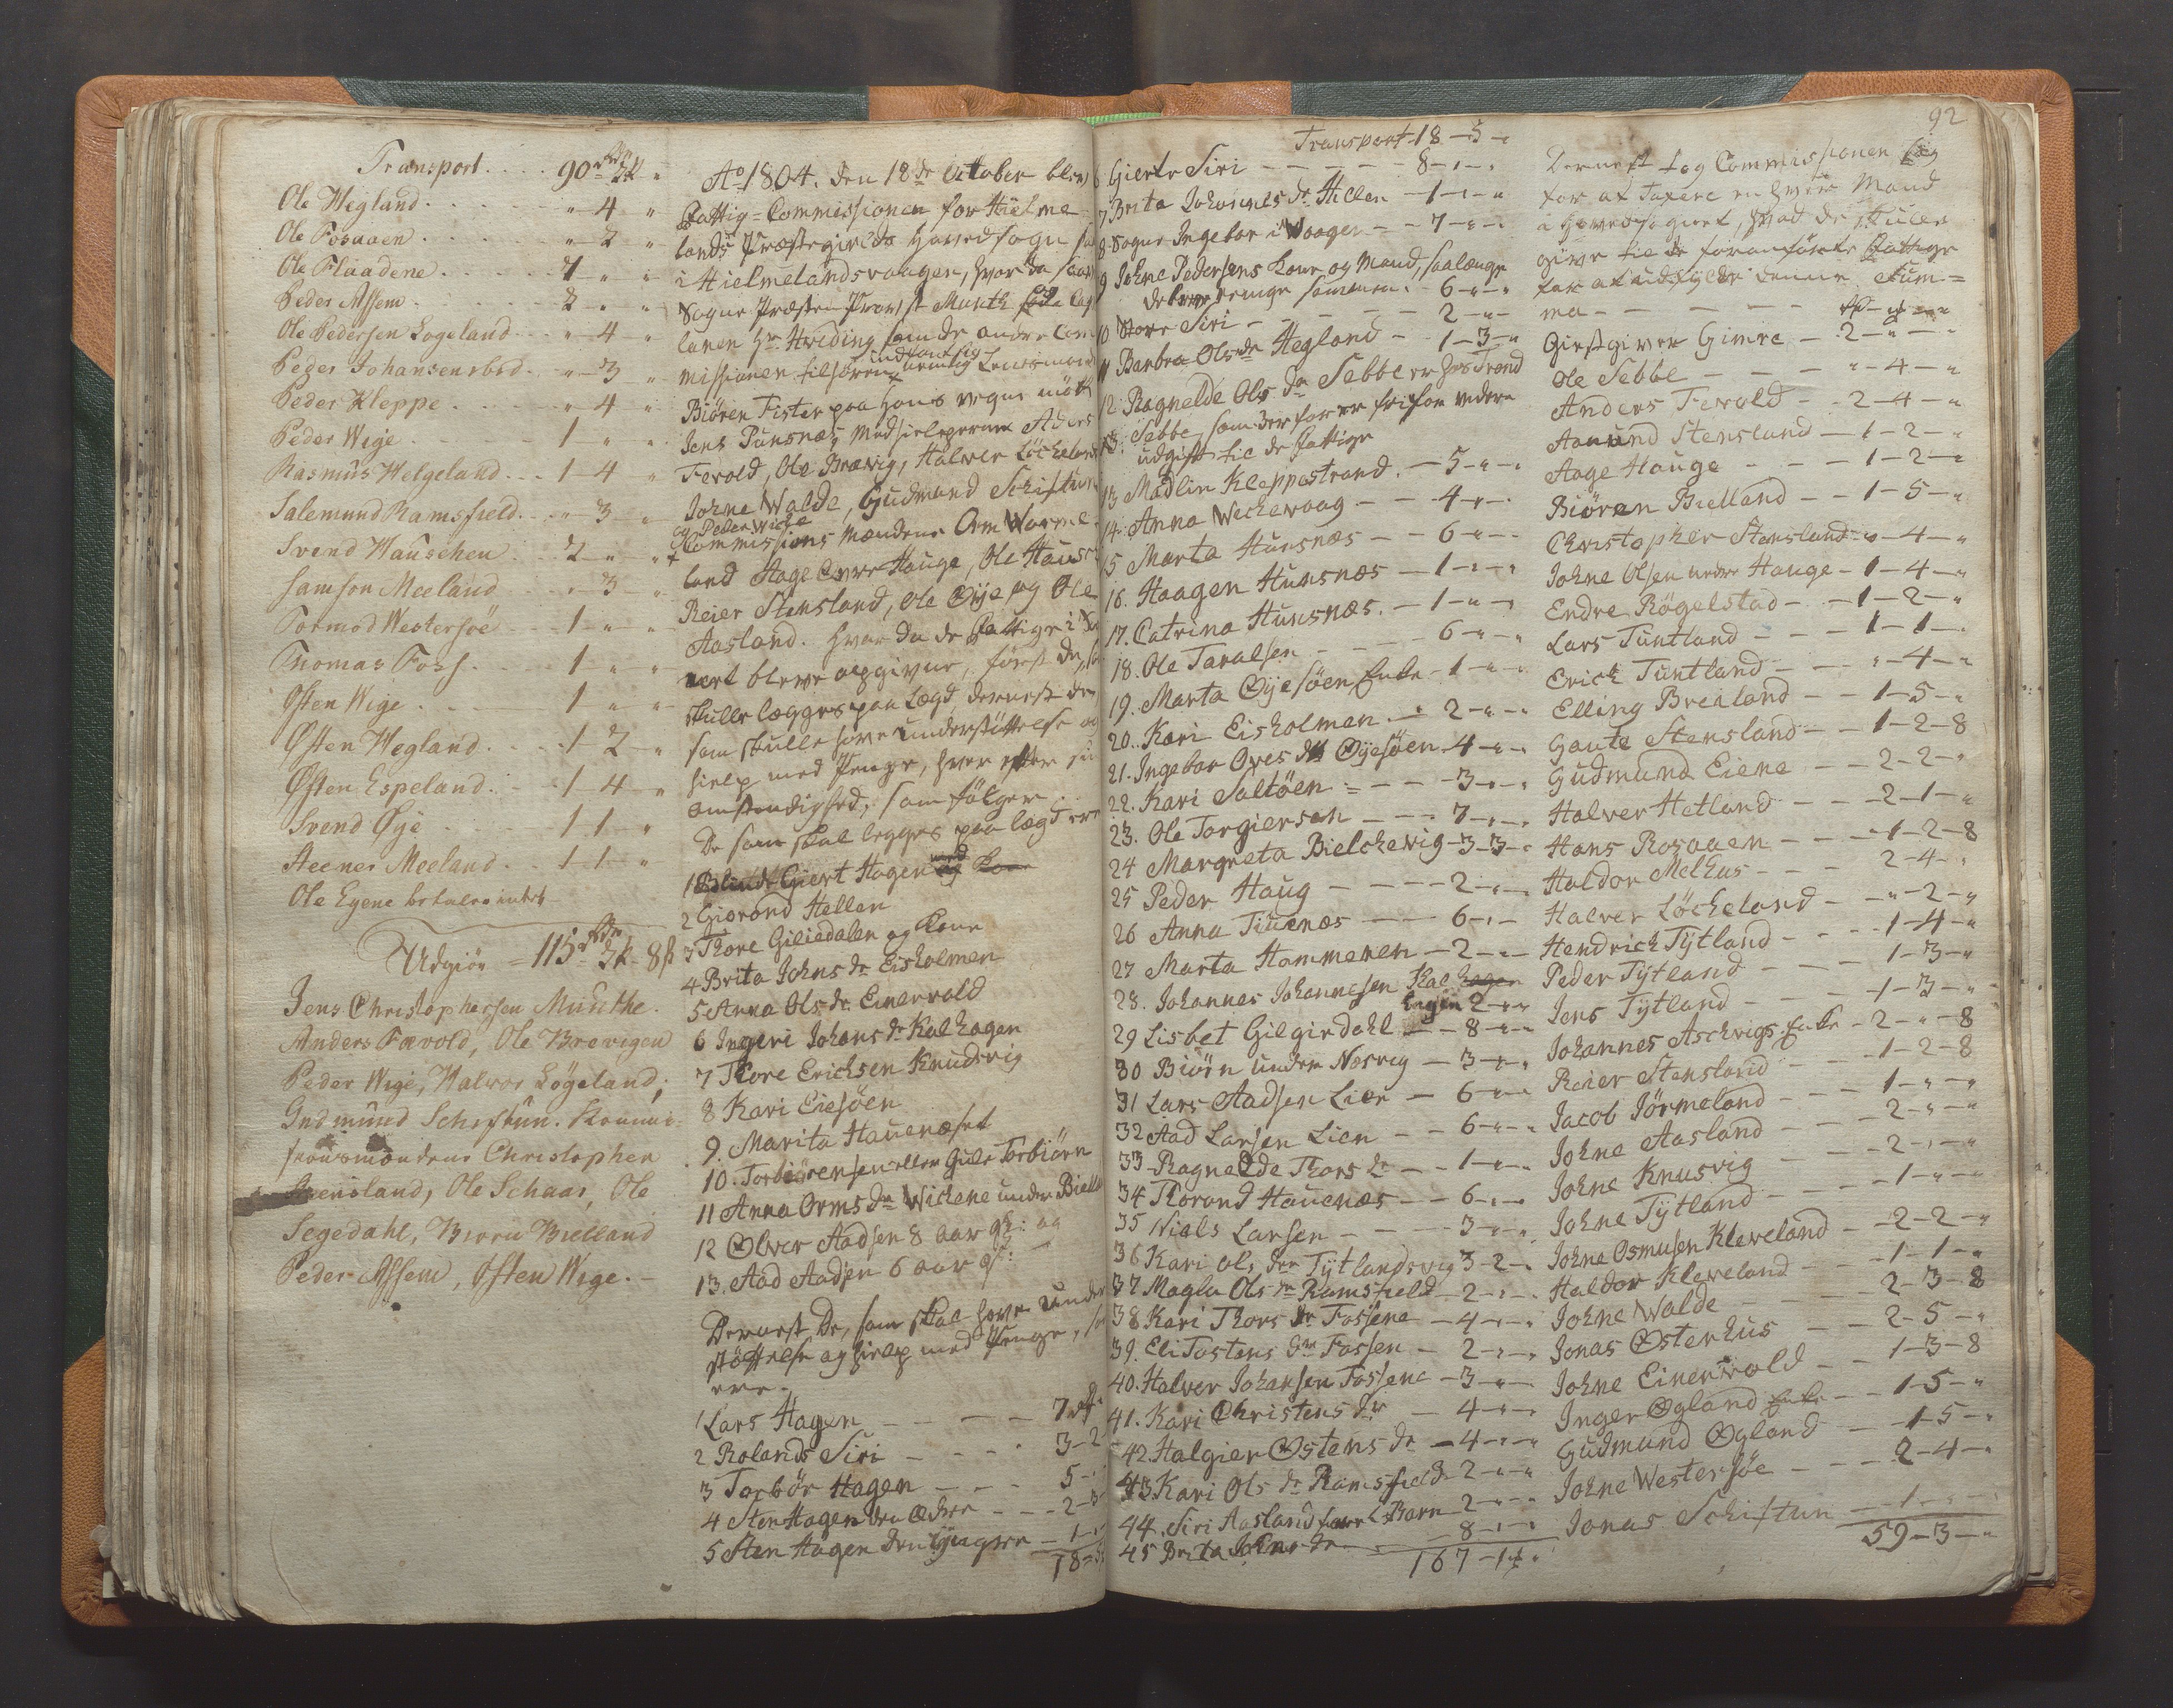 Transport . . . . 90 rdr 2 ℔ „
Ole Wegland . . . . . „ 4 „
Ole Fosaaen . . . . . „ 2 „
Ole Flaadene . . . . . 1 „ „
Peder Assem . . . . . 2 „ „
Ole Pedersen Logeland . . „ 4 „
Peder Johansensbod . . „ 3 „
Peder Kleppe . . . . „ 4 „
Peder Wige . . . . . 1 „ „
Rasmus Helgeland . . . 1 4 „
Salemund Ramsfield . . „ 3 „
Svend Hauschen . . 2 „ „
Samson Meeland . . „ 3 „
Tormod Westersöe . . 1 „ „
Thomas Foss . . . . 1 „ „
Østen Wige . . . . 1 „ „
Østen Hegland . . . 1 2 „
Østen Espeland . . . 1 4 „
Svend Øye . . . . 1 1 „
Steener Meeland . . 1 1 „
Ole Egene betaler intet
Udgiör = 115 rdr 3 ℔ 8 ß
Jens Christophersen Munthe.
Anders Fævold, Ole Brevigen
Peder Wige, Halvor Løgeland,
Gudmund Schiftun. Kommi-
sionsmændene Christopher
Stensland, Ole Schaar, Ole
Segedahl, Biørn Bielland
Peder Assem, Østen Wige. —
Ao 1804. den 18de October blev
Fattig-Commissionen for Hielme-
lands Præstegields Hovedsogn
i Hielmelandsvaagen, hvor da
Sogne Præsten Provst Munth
lanen Hr. Heiding samt de andre Com
missionen tilhören indfandt sig nemlig Lensmand
Biören Fister paa hans vegne mött
Jens Punsnæs, Medhielperne Aders
Fevold, Ole Brævig, Halver Löcheland
Johne Walde, Gudmund Schiftun
og Peder Wiche
Commissions Mændene Orm Worme-
land Aage Øvre Hauge, Ole Hausch
Reier Stensland, Ole Øÿe og Ole
Aasland. hvor da de Fattige i
nert bleve opgivne, först de
skulle lægges paa Lægd, dernest de
som skulle have understöttelse og
hielp med Penge, hver efter
omstendighed, som fölger.
De som skal legges paa lægd ere
1 Blinde Giert Hagen med Kone
2 Giorond Hellen
3 Thore Giliedalen og Kone
4 Brita Johns dr Eisholmen
5 Anna Ols dr Einervold
6 Ingeri Johans dr Kalhagen
7 Thore Erichsen Knudsvig
8 Kari Eiesöen
9. Marita Hauenæset
10. Torbiörensen eller Gule Torbiörn
11 Anna Orms dr Wichene under Biella
12 Ølver Aadsen 8 aar gl: og
13. Aad Aadsen 6 aar gl:
Dernest De, som skal have under
stöttelse og hielp med Penge,
ere.
1 Lars Hagen — — — 7
2 Rolands Siri — — — 3-2
3 Torbör Hagen — — — 5-
4 Sten Hagen den Ældre — — 2-3
5 Sten Hagen den Yngere — 1-
18-5
92
Transport 18-5-„
6 Gierte Siri — — — 8-„-„
7 Brita Johannes dr Hellen — 1-„-„
8. Sogne Ingebor i Waagen — 7-„-„
9 Johne Pedersens Kone og Mand, saalænge
de ere tvinge sammen. 6-„-„
10 Store Siri — — — 2-„-„
11 Barbra Olsdr Hegland — 1-3-„
12. Ragnelde Ols dr Sebbe er hos Trond
Sebbe, som derfor er fri for videre
udgift til de Fattige
13 Madlin Kleppestrand. — 5-„-„
14. Anna Wechevaag — 4-„-„
15 Marta Hunsnæs — 6-„-„
16. Haagen Hunsnæs — 1-„-„
17. Catrina Hunsnæs. — 1-„-„
18. Ole Taralsen — — 6-„-„
19. Marta Øyesöen Enke — 1-„-„
20. Kari Eisholmen — 2-„-„
21. Ingebor Oves dr Øyesöen 4-„-„
22. Kari Saltöen — — 3-„-„
23. Ole Torgiersen — — 7-„-„
24 Margreta Bielchevig — 3-3-„
25 Peder Haug — — — 2-„-„
26 Anna Tiuenæs — — 6-„-„
27 Marta Hammeren — 2-„-„
28. Johannes Johannesen Kalhagen
hagen 2-„-„
29 Lisbet Gilgirdahl — 8-„-„
30 Biörn under Nesvig — 3-„-„
31 Lars Aadsen Lien — 6-„-„
32 Aad Larsen Lien — 6-„-„
33 Ragnelde Thors dr — 1-„-„
34 Thorond Hauenæs — 6-„-„
35 Niels Larsen — — 3-„-„
36 Kari Ols dtr Tÿtlandsvig 3-2-„
37 Magla Ols dr Ramsfield — 2-„-„
38 Kari Thors dr Fossene — 4-„-„
39. Eli Tostens dr Fossen — 2-„-„
40. Halver Johansen Fossene — 3-„-„
41. Kari Christens dr — 4-„-„
42. Halgier Østens dr — 4-„-„
43 Kari Ols dr Ramsfield 2-„-„
44. Siri Aasland Barn 2-„-„
45 Brita Johns dr — 8-„-„
167-1-„
Dernest tog Commissionen sig
for at Taxere en hver Mand
i Hovedsognet, hvad de skulle
give til de foranförte Fattige
for at udfylde denne Sum-
ma — — — —
Giestgiver Gimre — 2-„-„
Ole Sebbe — — „-4-„
Anders Fevold — 2-4-„
Aamund Stensland — 1-2-„
Aage Hauge — — 1-2-„
Biören Bielland — 1-5-„
Christopher Stensland — „-4-„
Johne Olsen nedre Hauge — 1-4-„
Endre Rögelstad — 1-2-„
Lars Tuntland — — 1-1-„
Erich Tuntland — „-4-„
Elling Brealand — 1-5-„
Gaute Stensland — 1-2-8
Gudmund Eiene — 2-2-„
Halver Hetland — — 2-1-„
Hans Rosaaen — — 1-2-8
Haldor Melhus — — 2-4-„
Halver Löcheland — „-2-„
Hendrich Tÿtland — — 1-4-„
Peder Tÿtland — — 1-3-„
Jens Tÿtland — — 1-3-„
Johannes Aschvigs Enke — 2-„-8
Reier Stensland — — 1-2-8
Jacob Jörmeland — — 1-„-„
Johne Aasland — — 2-„-„
Johne Knusvig — — 2-„-„
Johne Tÿtland — — 1-„-„
Johne Osmusen Kleveland — 2-2-„
Haldor Kleveland — 1-1-„
Johne Walde — — 2-3-8
Jonas Østerhus — — 2-5-„
Johne Einervold — — 1-3-8
Inger Øgland Enke — 1-5-„
Gudmund Øgland — 1-5-„
Johne Westersöe — — 2-4-„
Jonas Schiftun — 1-„-„
59-3-„